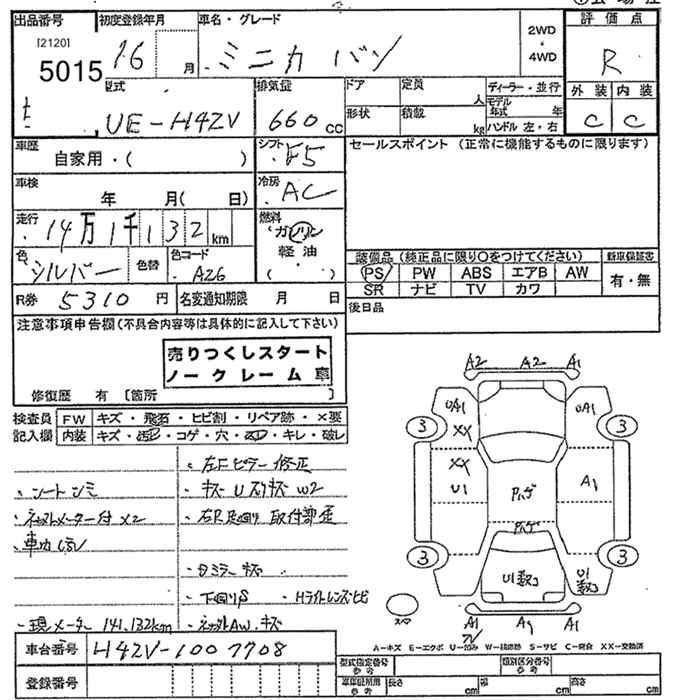 出品番号 初度登録年月 車名・グレード 2WD・4WD 評価点
[2120]
5015 16 月 ミニカ バン R
型式 排気量 ドア 定員 人 ディーラー・並行 外装 内装
UE-H42V 660 cc 形状 積載 kg モデル年式 年 ハンドル 左・右 C C
車歴 自家用・( ) シフト F5 セールスポイント (正常に機能するものに限ります)
車検 年 月( 日) 冷房 AC
走行 14万1千132km 燃料 ガソリン 軽油 ( )
色 シルバー 色替 色コード A26 装備品 (純正品に限り○をつけてください) 新車保証書
PS PW ABS エアB AW 有・無
SR ナビ TV カワ
R券 5310円 名変通知期限 月 日 後日品
注意事項申告欄(不具合内容等は具体的に記入して下さい)
売りつくしスタート
ノークレーム車
修復歴 有 [箇所
検査員 FW キズ・飛石・ヒビ割・リペア跡・×要
記入欄 内装 キズ・汚レ・コゲ・穴・凹・キレ・破レ
・左Fピラー修正
・シートシミ ・キズ U スリキズ W2
メーター付 X2 ・右R足廻り 取付部歪
・ミラーキズ
・下回りS ・Hライトレンズヒビ
・現メーター 141,132km AW.キズ
車台番号 H42V-1007708
登録番号
A2 A2 A1
UA1 UA1
3 XX 3
XX
U1 A1
3 3
U1 U1
スペア A1 A1
A-キズ E-エクボ U-凹み W-補修跡 S-サビ C-腐食 XX-交換済
型式指定番号 参考 類別区分番号 参考
車車証所用 参考 長さ cm 幅 cm 高さ cm